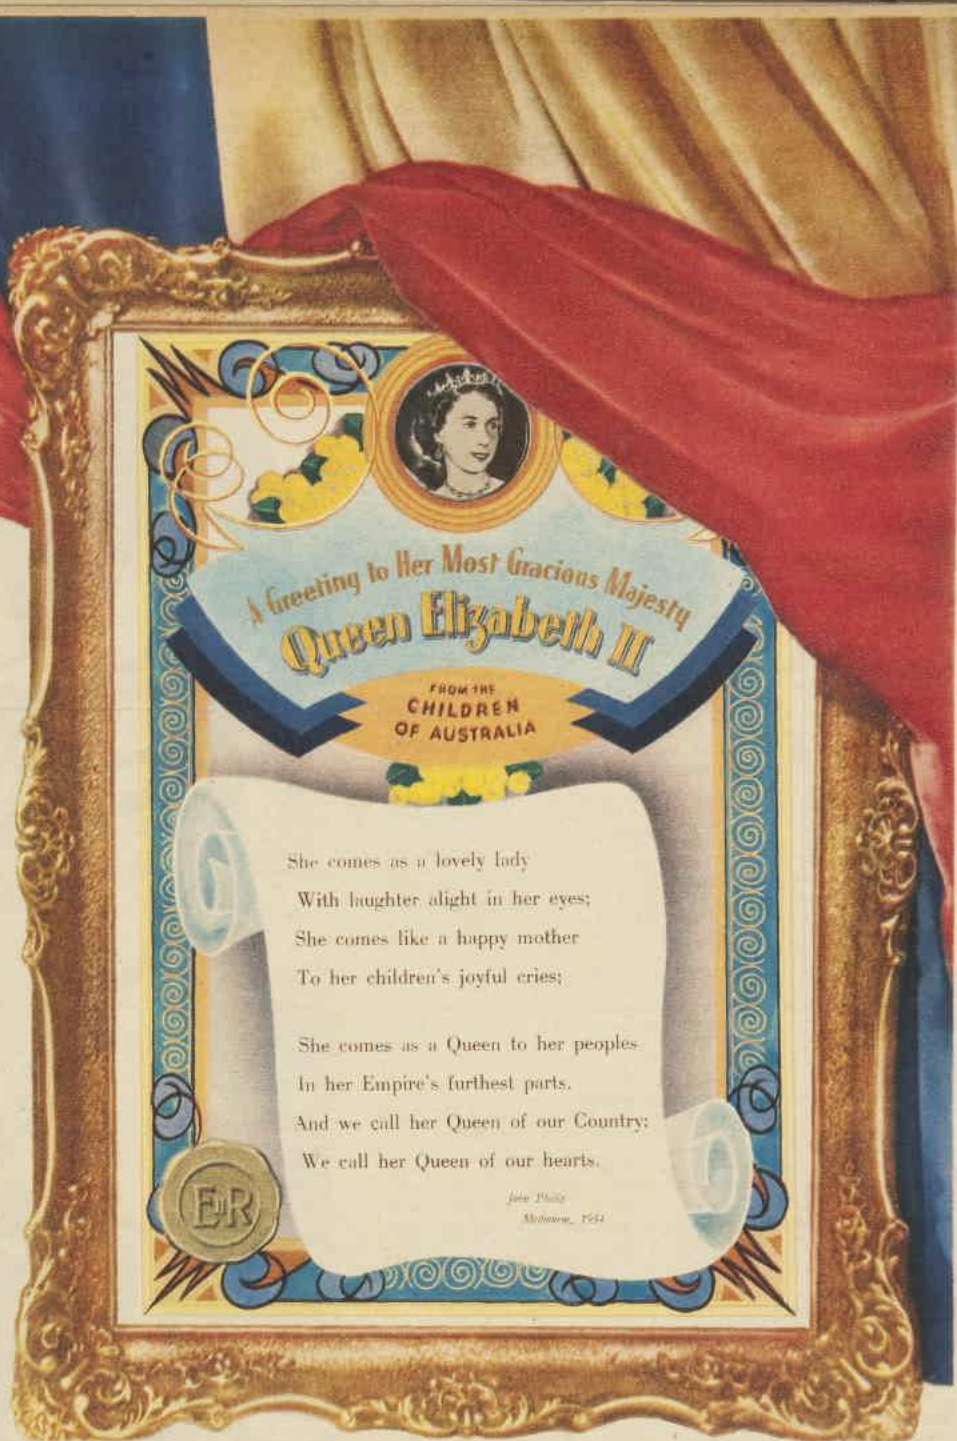 A Greeting to Her Most Gracious Majesty
Queen Elizabeth II
FROM THE
CHILDREN
OF AUSTRALIA
She comes as a lovely lady
With laughter alight in her eyes;
She comes like a happy mother
To her children's joyful cries;
She comes as a Queen to her peoples
In her Empire's furthest parts.
And we call her Queen of our Country;
We call her Queen of our hearts.
John
Melbourne, 1954
EIIR